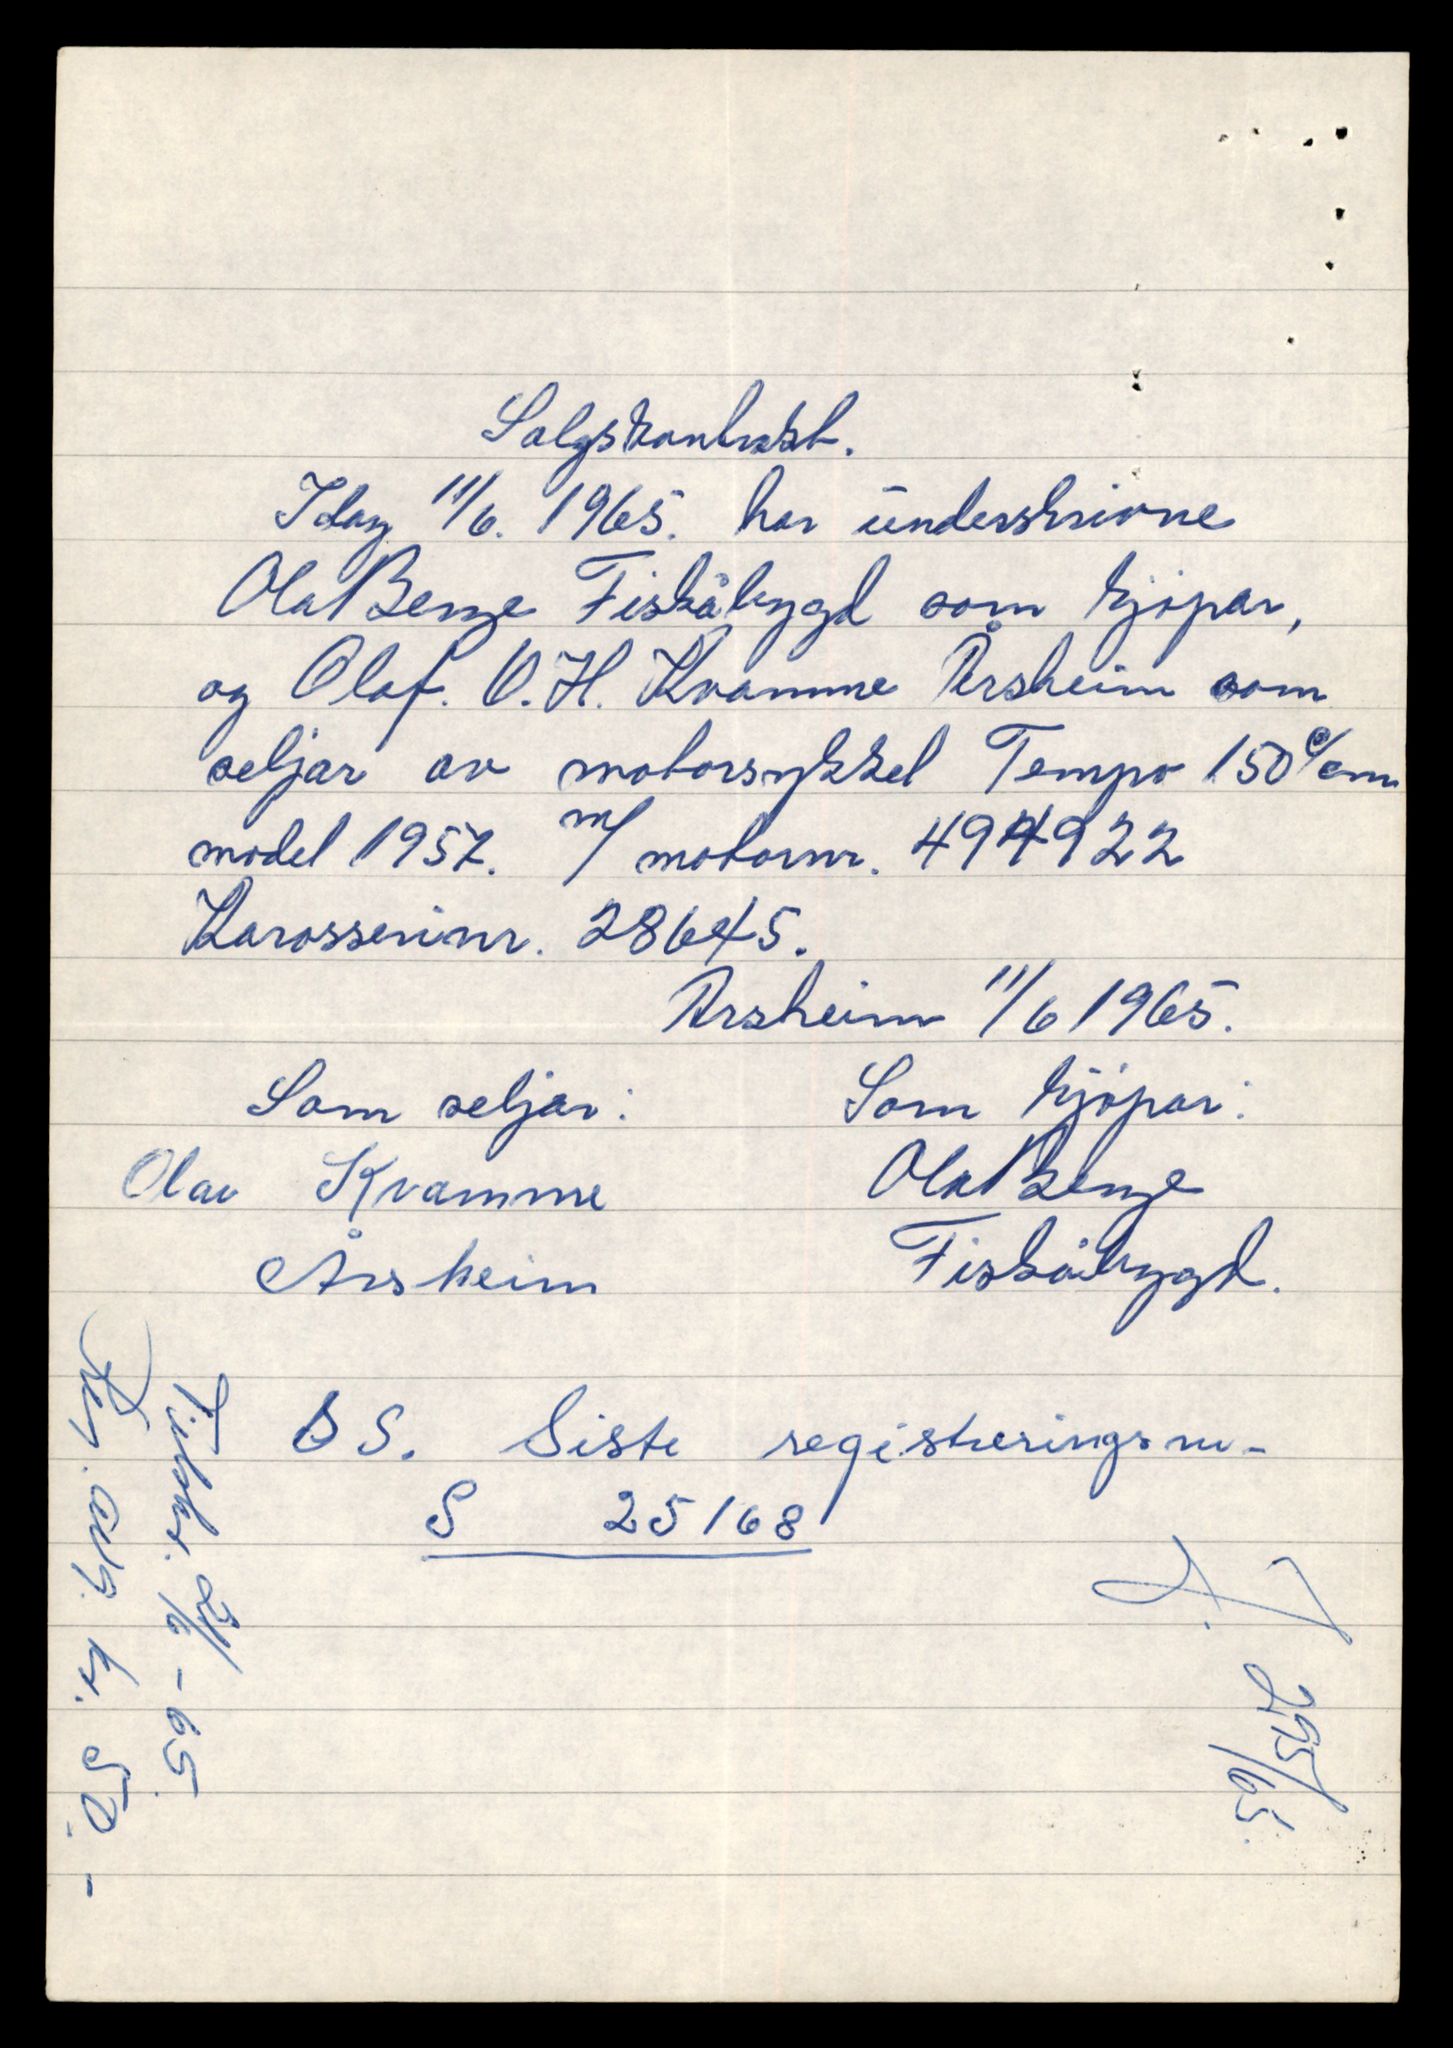 Salgskontrakt.
Idag 11/6. 1965. har underskrivne
Ola Berge Fiskåbygd som kjøpar,
og Olaf. O.H. Kvamme Årsheim som
seljar av motorsykkel Tempo 150 c/cm
model 1957. m/ motornr. 494922
Karosserinr. 28645.
Årsheim 11/6 1965.
Som seljar: Som kjøpar:
Olav Kvamme Ola Berge
Årsheim Fiskåbygd.
S. Siste registreringsnr-
S 25168
Tilbkr. 21/6 - 65
Reg. avg. kr. 50.-
295/65.